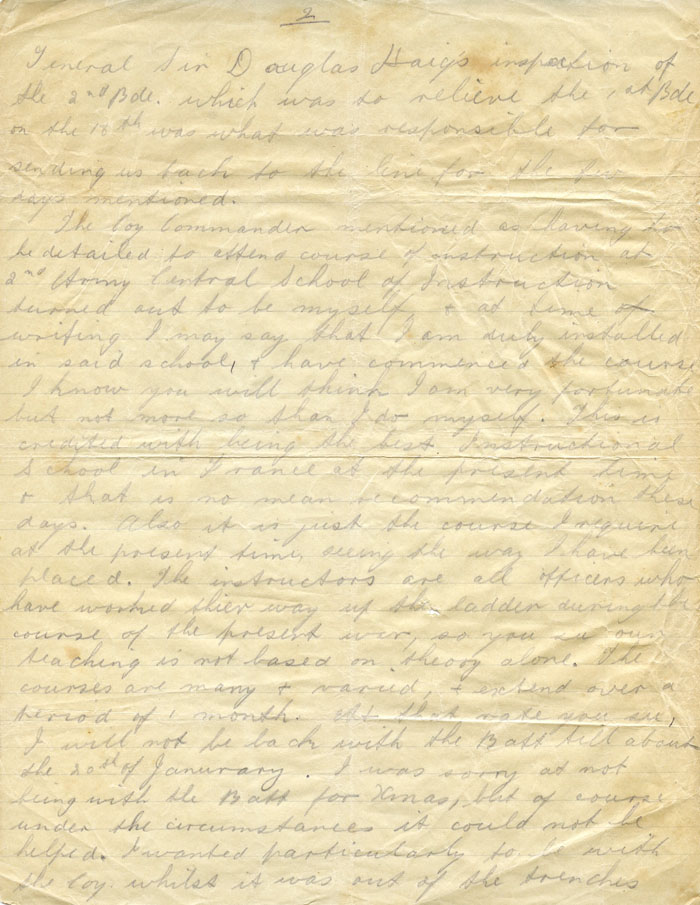 2
General Sir Douglas Haig's inspection of
the 2nd Bde. which was to relieve the 1st Bde
on the 18th was what was responsible for
sending us back to the line for the few
days mentioned.
The Coy Commander mentioned as having to
be detailed to attend course of instruction at
2nd Army Central School of Instruction
turned out to be myself, & at time of
writing I may say that I am duly installed
in said school, & have commenced the course
I know you will think I am very fortunate
but not more so than I do myself. This is
credited with being the best Instructional
School in France at the present time
& that is no mean recommendation these
days. Also it is just the course I require
at the present time, seeing the way I have been
placed. The instructors are all officers who
have worked thier way up the ladder during the
course of the present war, so you see our
teaching is not based on theory alone. The
courses are many & varied, & extend over a
period of 1 month. At that rate you see,
I will not be back with the Batt till about
the 20th of Janurary. I was sorry at not
being with the Batt for Xmas, but of course
under the circumstances it could not be
helped. I wanted particularly to be with
the Coy whilst it was out of the trenches